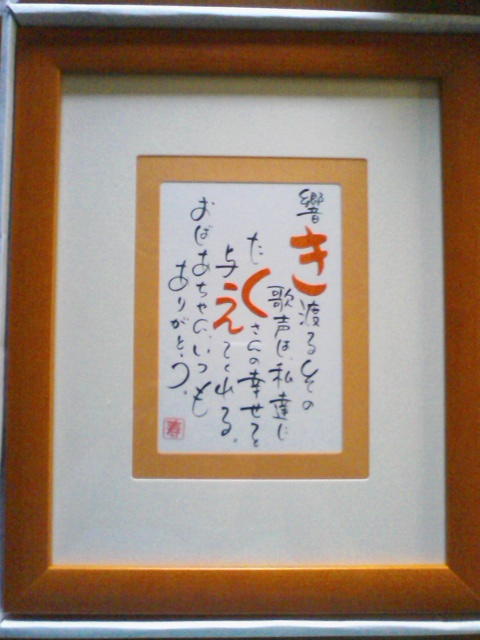 響き渡るその
歌声は、私達に
たくさんの幸せを
与えてくれる。
おばあちゃん、いつも
ありがとう。